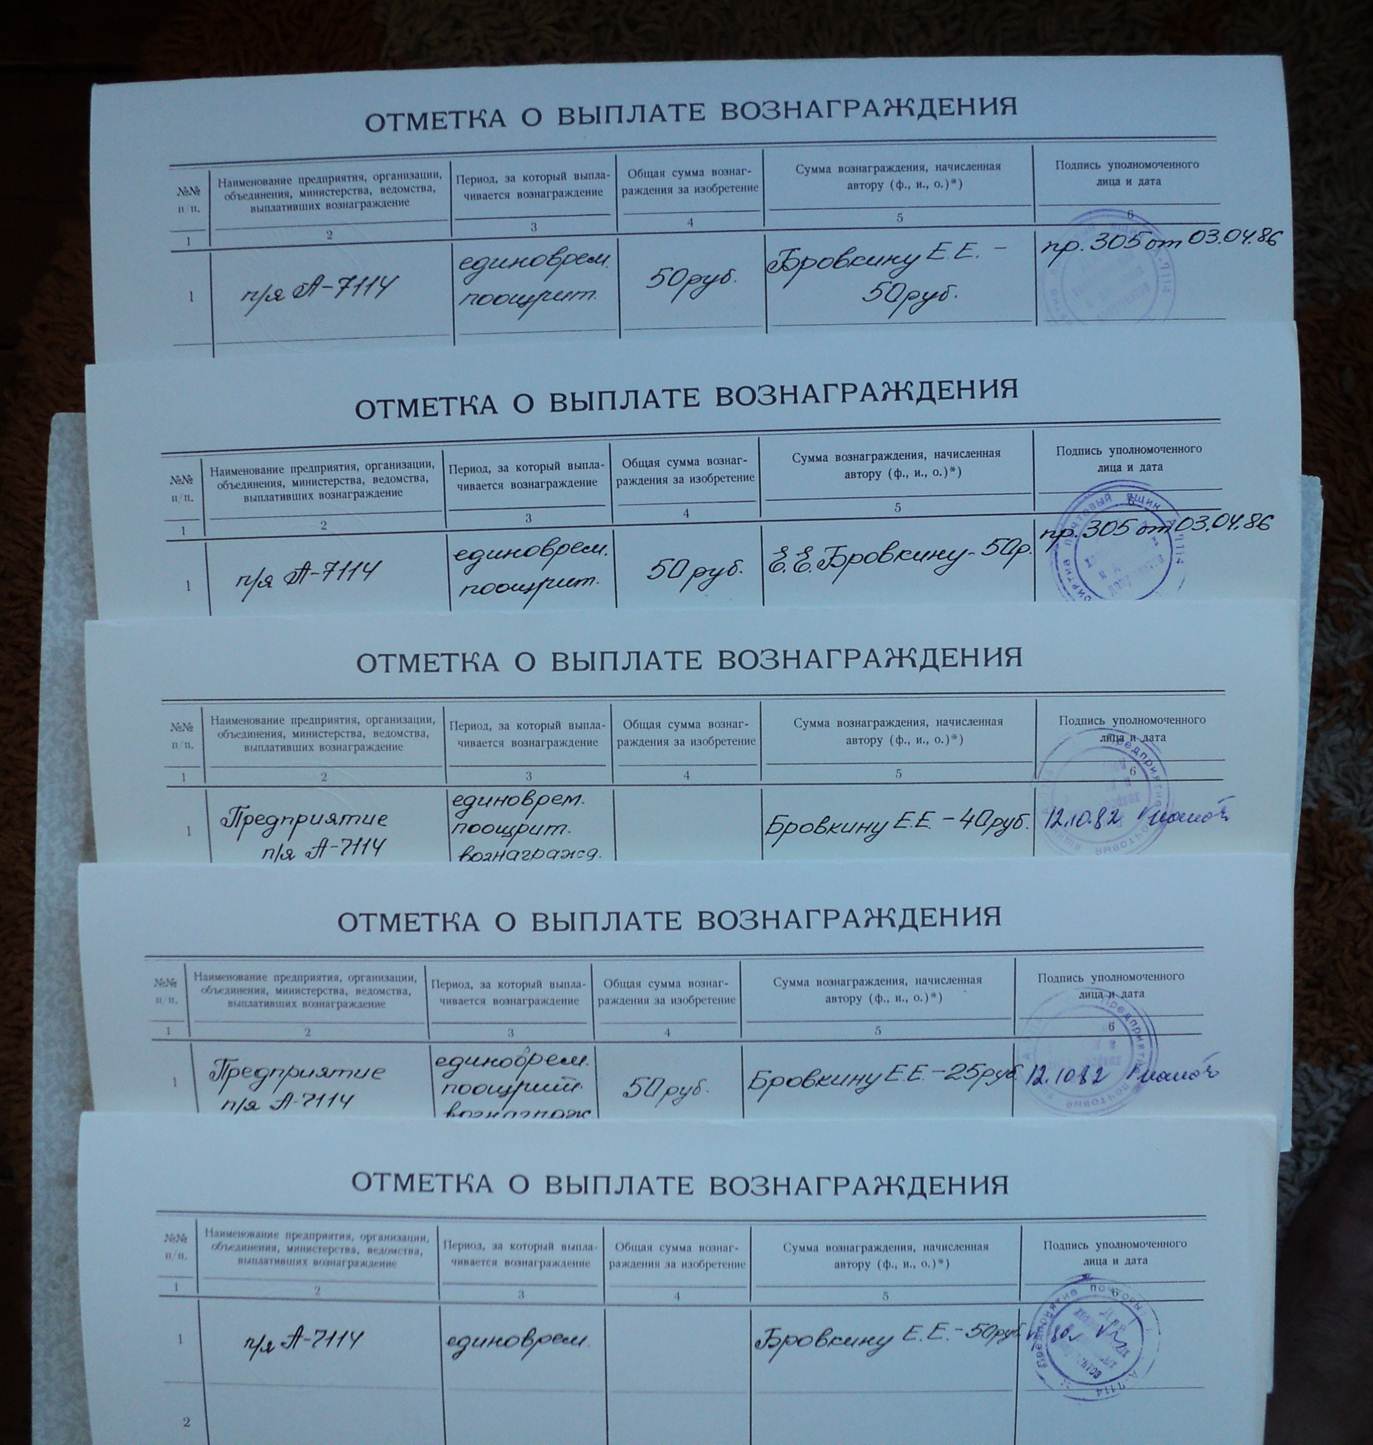 ОТМЕТКА О ВЫПЛАТЕ ВОЗНАГРАЖДЕНИЯ
№№ п/п. Наименование предприятия, организации, объединения, министерства, ведомства, выплативших вознаграждение Период, за который выпла-чивается вознаграждение Общая сумма вознаг-раждения за изобретение Сумма вознаграждения, начисленная автору (ф., и., о.)*) Подпись уполномоченного лица и дата
1 2 3 4 5 6
1 п/я А-7114 единоврем. поощрит. 50 руб. Бровкину Е.Е. – 50 руб. пр. 305 от 03.04.86
ОТМЕТКА О ВЫПЛАТЕ ВОЗНАГРАЖДЕНИЯ
№№ п/п. Наименование предприятия, организации, объединения, министерства, ведомства, выплативших вознаграждение Период, за который выпла-чивается вознаграждение Общая сумма вознаг-раждения за изобретение Сумма вознаграждения, начисленная автору (ф., и., о.)*) Подпись уполномоченного лица и дата
1 2 3 4 5 6
1 п/я А-7114 единоврем. поощрит. 50 руб. Е.Е. Бровкину - 50р. пр. 305 от 03.04.86
почтовый ящик 7114
ОТМЕТКА О ВЫПЛАТЕ ВОЗНАГРАЖДЕНИЯ
№№ п/п. Наименование предприятия, организации, объединения, министерства, ведомства, выплативших вознаграждение Период, за который выпла-чивается вознаграждение Общая сумма вознаг-раждения за изобретение Сумма вознаграждения, начисленная автору (ф., и., о.)*) Подпись уполномоченного лица и дата
1 2 3 4 5 6
1 Предприятие п/я А-7114 единоврем. поощрит. вознагражд. Бровкину Е.Е. – 40 руб. 12.10.82
Предприятие почтовый ящик
ОТМЕТКА О ВЫПЛАТЕ ВОЗНАГРАЖДЕНИЯ
№№ п/п. Наименование предприятия, организации, объединения, министерства, ведомства, выплативших вознаграждение Период, за который выпла-чивается вознаграждение Общая сумма вознаг-раждения за изобретение Сумма вознаграждения, начисленная автору (ф., и., о.)*) Подпись уполномоченного лица и дата
1 2 3 4 5 6
1 Предприятие п/я А-7114 единоврем. поощрит. 50 руб. Бровкину Е.Е. – 25 руб 12.10 82
Предприятие почтовый
ОТМЕТКА О ВЫПЛАТЕ ВОЗНАГРАЖДЕНИЯ
№№ п/п. Наименование предприятия, организации, объединения, министерства, ведомства, выплативших вознаграждение Период, за который выпла-чивается вознаграждение Общая сумма вознаг-раждения за изобретение Сумма вознаграждения, начисленная автору (ф., и., о.)*) Подпись уполномоченного лица и дата
1 2 3 4 5 6
1 п/я А-7114 единоврем. Бровкину Е.Е. – 50 руб.
Предприятие А-7114
2